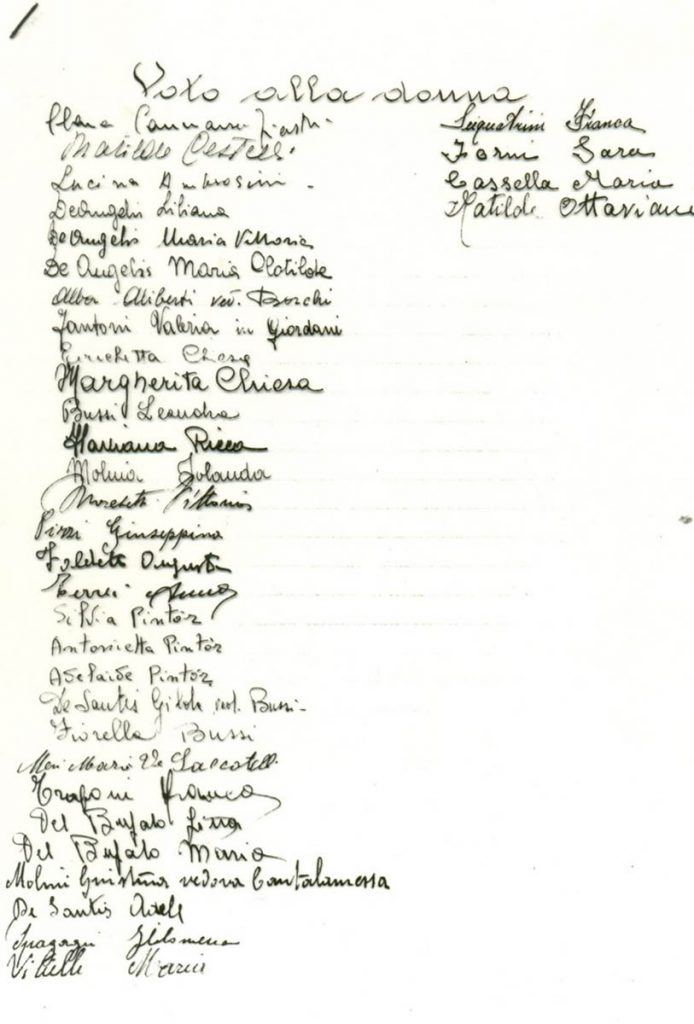 Voto alla donna
Matilde
Lucina Ambrosini
De Angelis Liliana
De Angelis Maria Vittoria
De Angelis Maria Clotilde
Alba Aliberti ved. Boschi
Fantoni Valeria in Giordani
Enrichetta Chiesa
Margherita Chiesa
Bussi Leandra
Marciana Ricca
Molnia Jolanda
Vittoria
Pizzi Giuseppina
Augusta
Anna
Silvia Pintör
Antonietta Pintör
Adelaide Pintör
De Santis Gilda ved. Bussi
Fiorella Bussi
Trapani Franca
Del Bufalo Lina
Del Bufalo Maria
Molini Giustina vedova Cantalamessa
De Santis Adele
Filomena
Vitelli Maria
Franca
Forni Sara
Cassella Maria
Matilde Ottaviani